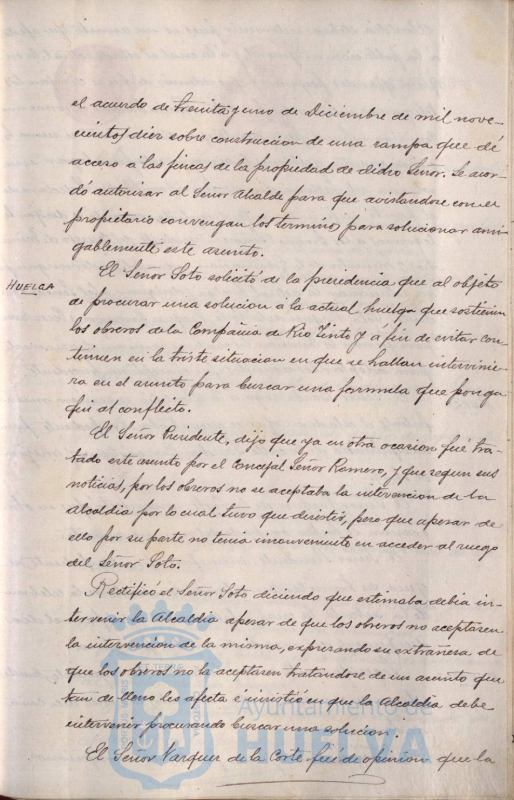 el acuerdo de treinta y uno de Diciembre de mil nove-
cientos diez sobre construccion de una rampa que dé
acceso á las fincas de la propiedad de didro Señor. Se acor-
dó autorizar al Señor Alcalde para que avistandose con el
propietario convengan los terminos para solucionar ami-
gablemente este asunto.
HUELGA
El Señor Soto solicitó de la presidencia que al objeto
de procurar una solucion á la actual huelga que sostienen
los obreros de la Compañia de Rio Tinto y á fin de evitar con-
tinuen en la triste situacion en que se hallan intervinie-
ra en el asunto para buscar una formula que ponga
fin al conflicto.
El Señor Presidente, dijo que ya en otra ocasion fué tra-
tado este asunto por el Concejal Señor Romero, y que segun sus
noticias, por los obreros no se aceptaba la intervencion de la
alcaldia por lo cual tuvo que desistir, pero que apesar de
ello por su parte no tenia inconveniente en acceder al ruego
del Señor Soto.
Rectificó el Señor Soto diciendo que estimaba debia in-
tervenir la Alcaldia apesar de que los obreros no aceptasen
la intervencion de la misma, expresando su extrañesa de
que los obreros no la aceptasen tratandose de un asunto que
tan de lleno les afecta é insistió en que la Alcaldia debe
intervenir procurando buscar una solucion.
El Señor Vazquez de la Corte fué de opinion que la
Ayuntamiento de
HUELVA